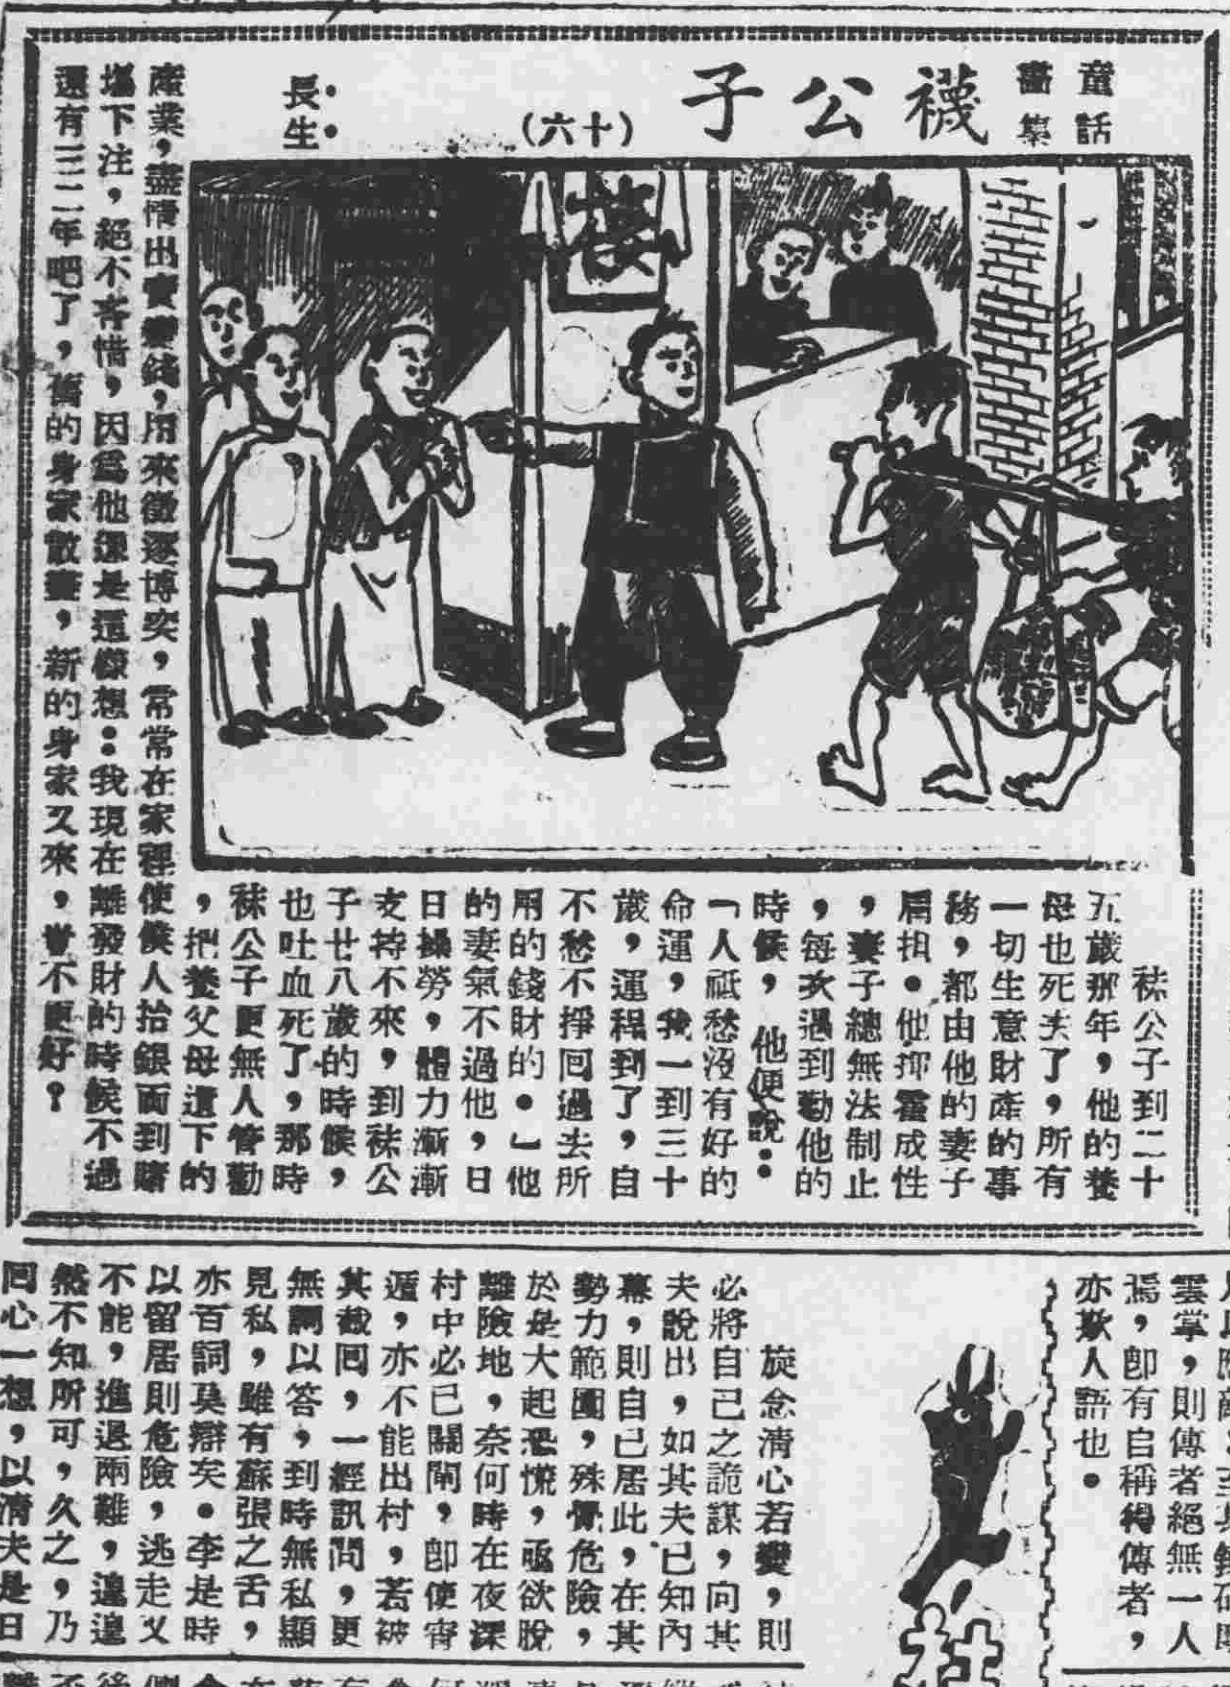 童話
畵集
襪公子
（十六）
長生
樓
袜公子到二十
五歲那年，他的養
母也死去了，所有
一切生意財產的事
務，都由他的妻子
肩担。他揮霍成性
，妻子總無法制止
，每次遇到勸他的
時候，他便說：
「人祗愁沒有好的
命運，我一到三十
歲，運程到了，自
不愁不掙回過去所
用的錢財的。」他
的妻氣不過他，日
日操勞，體力漸漸
支持不來，到袜公
子廿八歲的時候，
也吐血死了，那時
袜公子更無人管勸
，把養父母遺下的
產業，盡情出賣變錢，用來徵逐博奕，常常在家裡使僕人抬銀面到賭
塲下注，絕不吝惜，因爲他還是這樣想：我現在離發財的時候不過
還有三二年吧了，舊的身家散盡，新的身家又來，豈不更好？
雲掌，則傳者絕無一人
焉，卽有自稱得傳者，
亦欺人語也。
旋念清心若變，則
必將自己之詭謀，向其
夫說出，如其夫已知內
幕，則自己居此，在其
勢力範圍，殊覺危險，
於是大起恐慌，亟欲脫
離險地，奈何時在夜深
村中必已關閘，卽使宵
遁，亦不能出村，若被
其截回，一經訊問，更
無詞以答，到時無私顯
見私，雖有蘇張之舌，
亦百詞莫辯矣。李是時
以留居則危險，逃走又
不能，進退兩難，遑遑
然不知所可，久之，乃
回心一想，以清夫是日